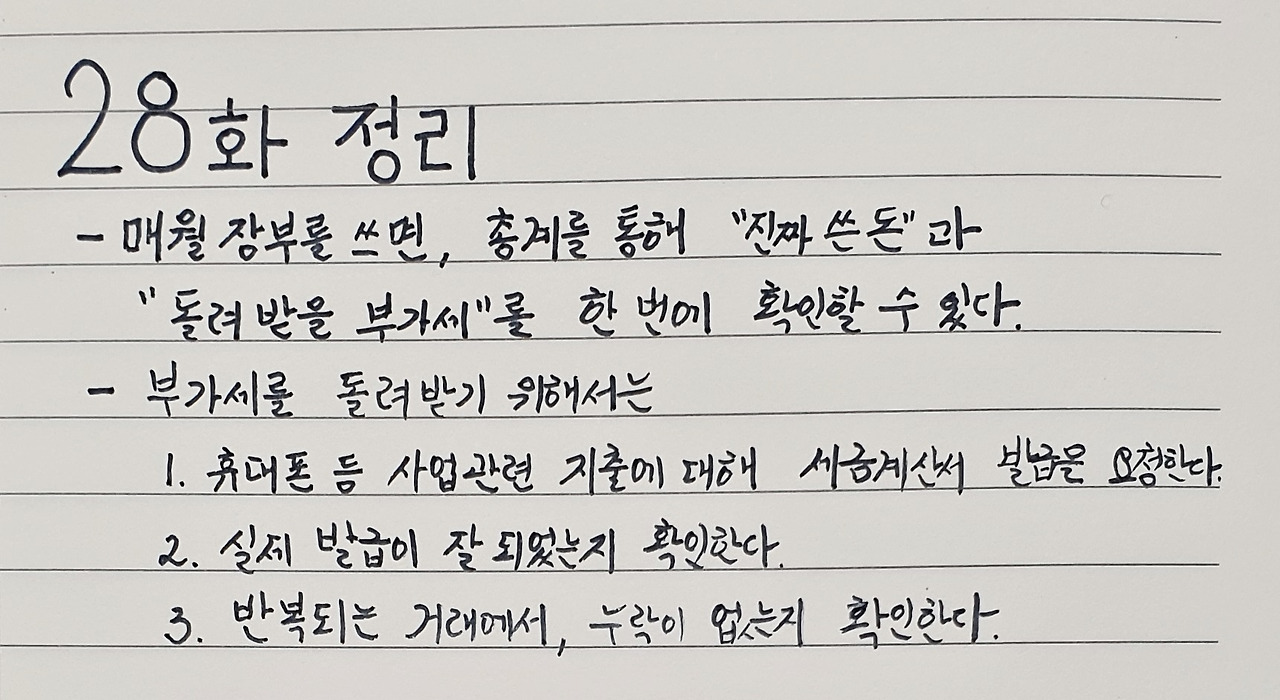 28화 정리
- 매월 장부를 쓰면, 총계를 통해 "진짜 쓴 돈"과
"돌려 받을 부가세"를 한 번에 확인할 수 있다.
- 부가세를 돌려받기 위해서는
1. 휴대폰 등 사업관련 지출에 대해 세금계산서 발급을 요청한다.
2. 실제 발급이 잘 되었는지 확인한다.
3. 반복되는 거래에서, 누락이 없는지 확인한다.